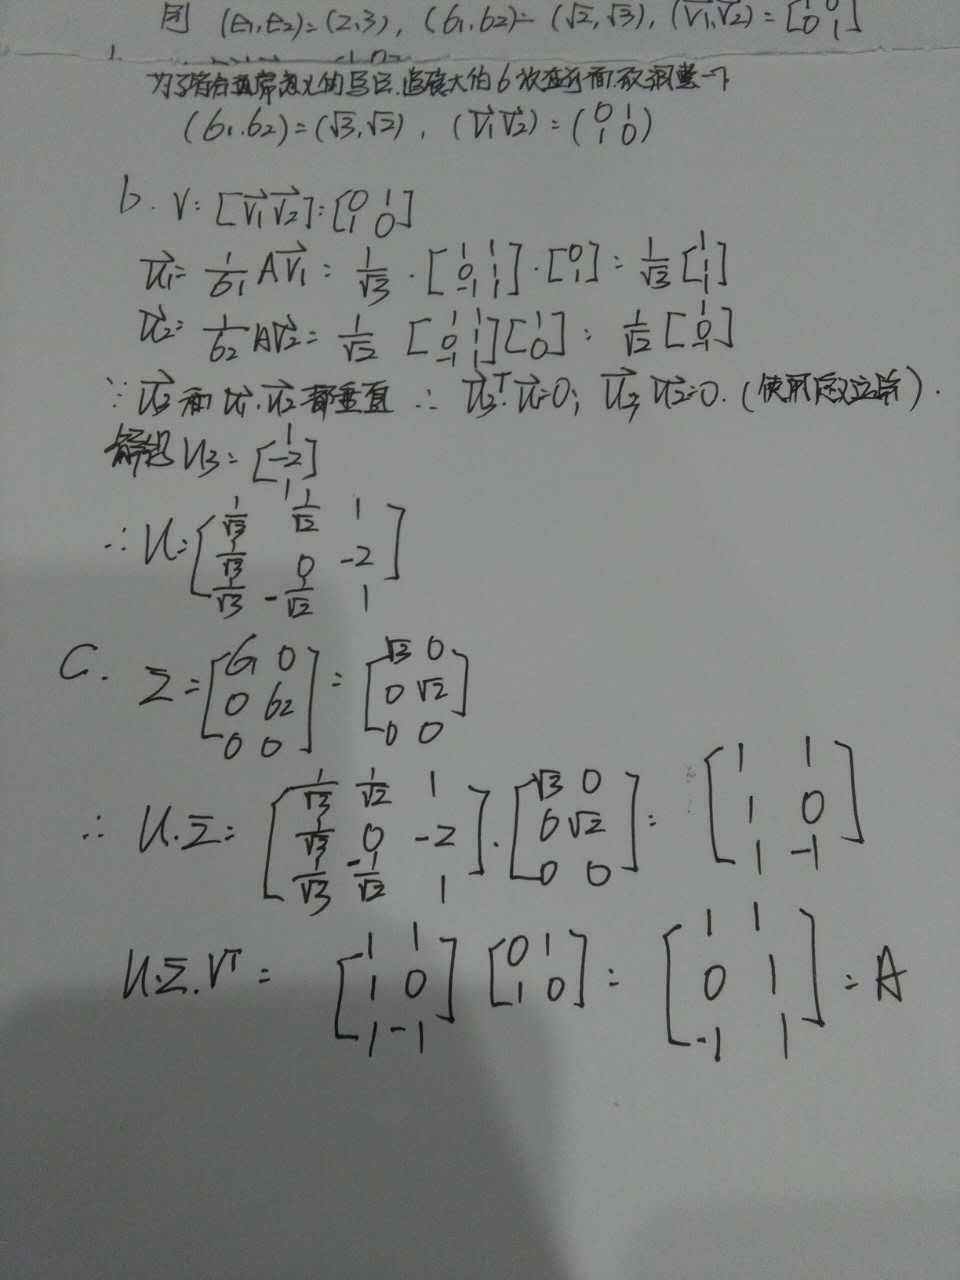 (E₁,E₂)=(2,3), (σ₁,σ₂)=(√2,√3), (v₁⃗,v₂⃗)=[1 0; 0 1]
(σ₁.σ₂)=(√3,√2), (v₁⃗ v₂⃗)=(0 1; 1 0)
b. V=[v₁⃗ v₂⃗]=[0 1; 1 0]
u₁⃗=1/σ₁ Av₁⃗=1/√3·[1 1; 0 1; -1 1]·[0; 1]=1/√3[1; 1; 1]
u₂⃗=1/σ₂ Av₂⃗=1/√2 [1 1; 0 1; -1 1][1; 0]=1/√2[1; 0; -1]
∵ u₃⃗和u₁⃗.u₂⃗都垂直 ∴ u₃⃗ᵀ.u₁⃗=0; u₃⃗ u₂⃗=0.
u₃=[1; -2; 1]
∴ U=[1/√3 1/√2 1; 1/√3 0 -2; 1/√3 -1/√2 1]
C. Σ=[σ₁ 0; 0 σ₂; 0 0]=[√3 0; 0 √2; 0 0]
∴ U.Σ=[1/√3 1/√2 1; 1/√3 0 -2; 1/√3 -1/√2 1].[√3 0; 0 √2; 0 0]=[1 1; 1 0; 1 -1]
U.Σ.Vᵀ=[1 1; 1 0; 1 -1][0 1; 1 0]=[1 1; 0 1; -1 1]=A